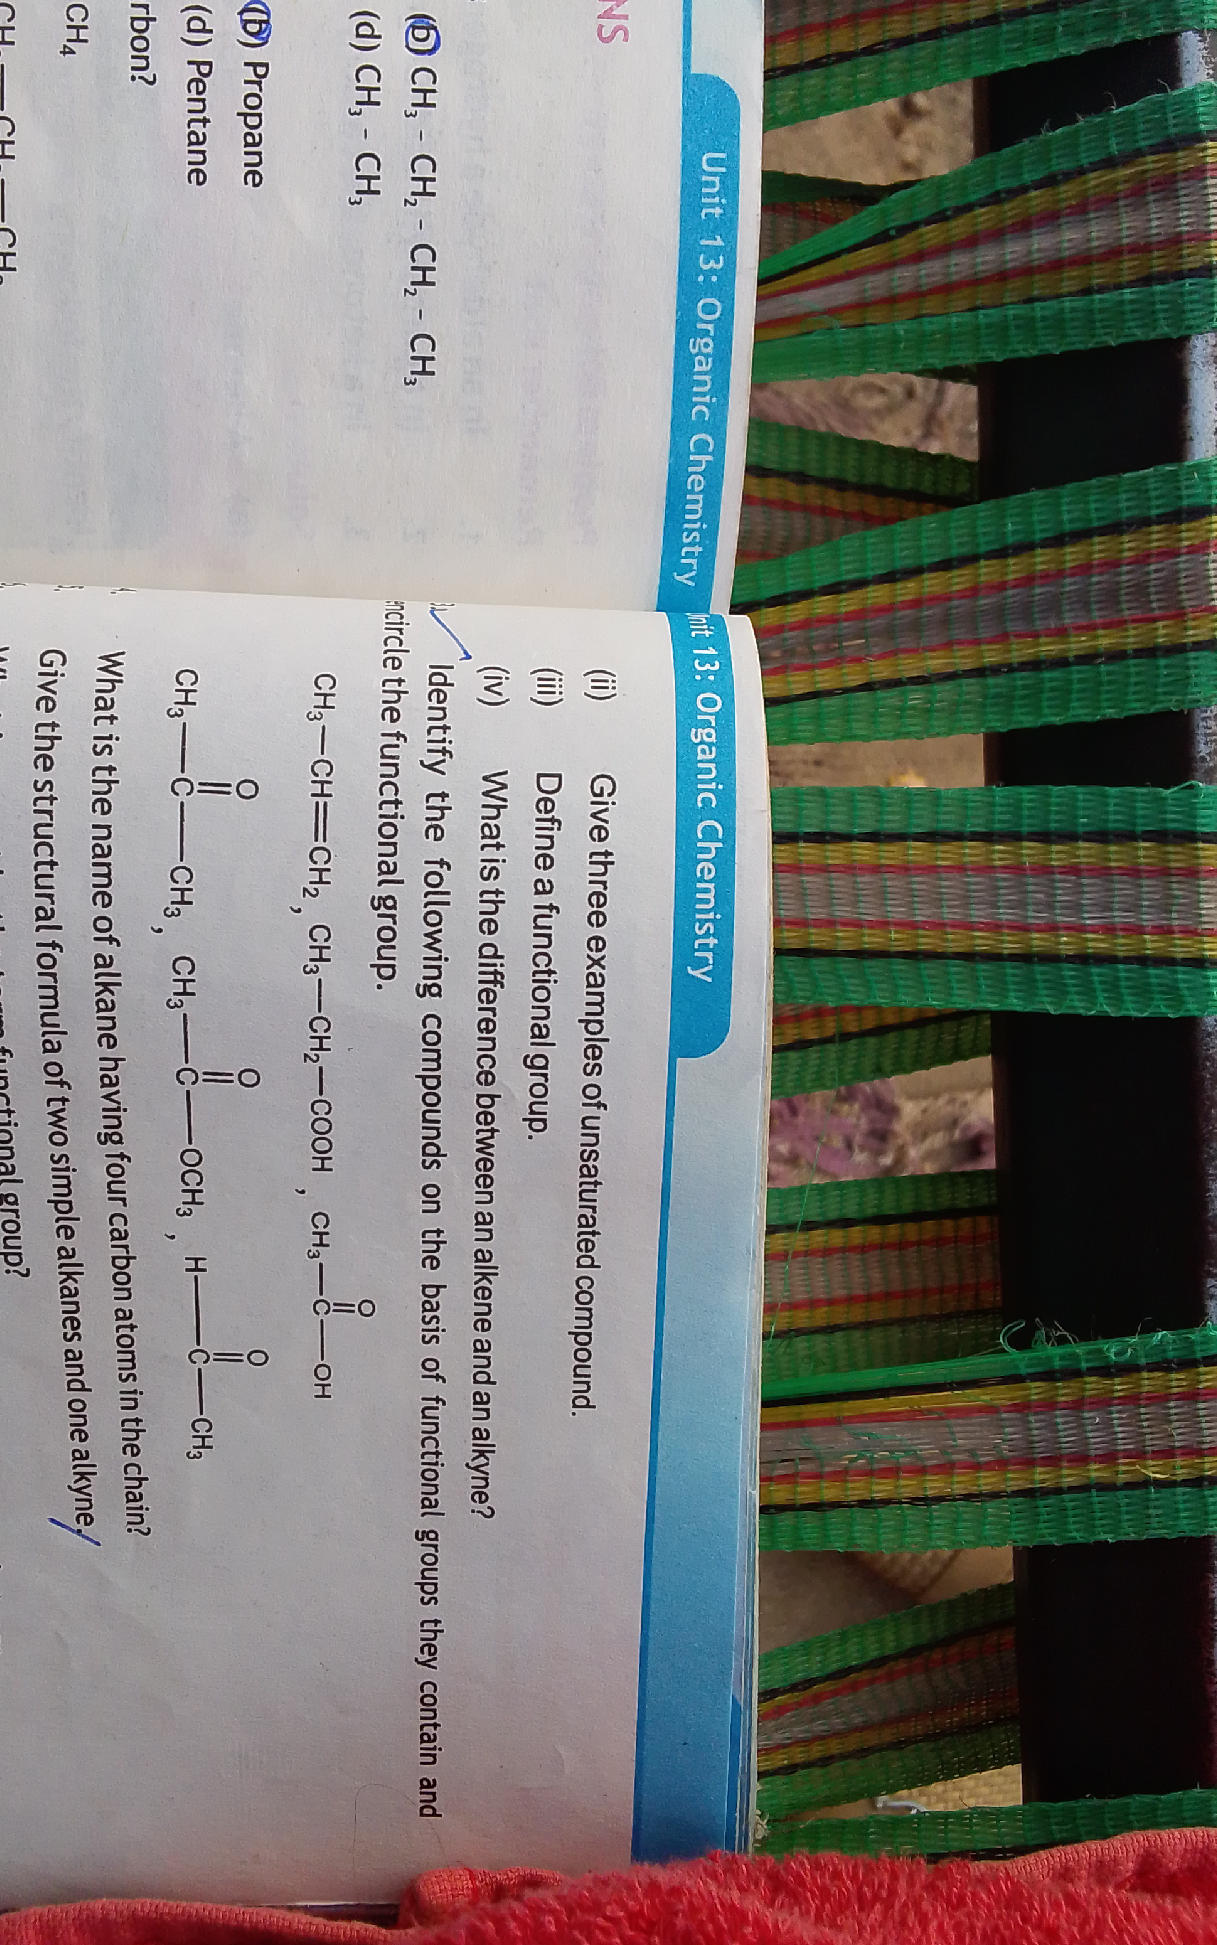 NS
Unit 13: Organic Chemistry
(b) CH₃ - CH₂ - CH₂ - CH₃
(d) CH₃ - CH₃
(b) Propane
(d) Pentane
rbon?
CH₄
nit 13: Organic Chemistry
(ii) Give three examples of unsaturated compound.
(iii) Define a functional group.
(iv) What is the difference between an alkene and an alkyne?
Identify the following compounds on the basis of functional groups they contain and
encircle the functional group.
O
CH₃—CH=CH₂, CH₃—CH₂—COOH, CH₃—C—OH
O O O
CH₃—C—CH₃, CH₃—C—OCH₃, H—C—CH₃
4. What is the name of alkane having four carbon atoms in the chain?
5. Give the structural formula of two simple alkanes and one alkyne.
functional group?